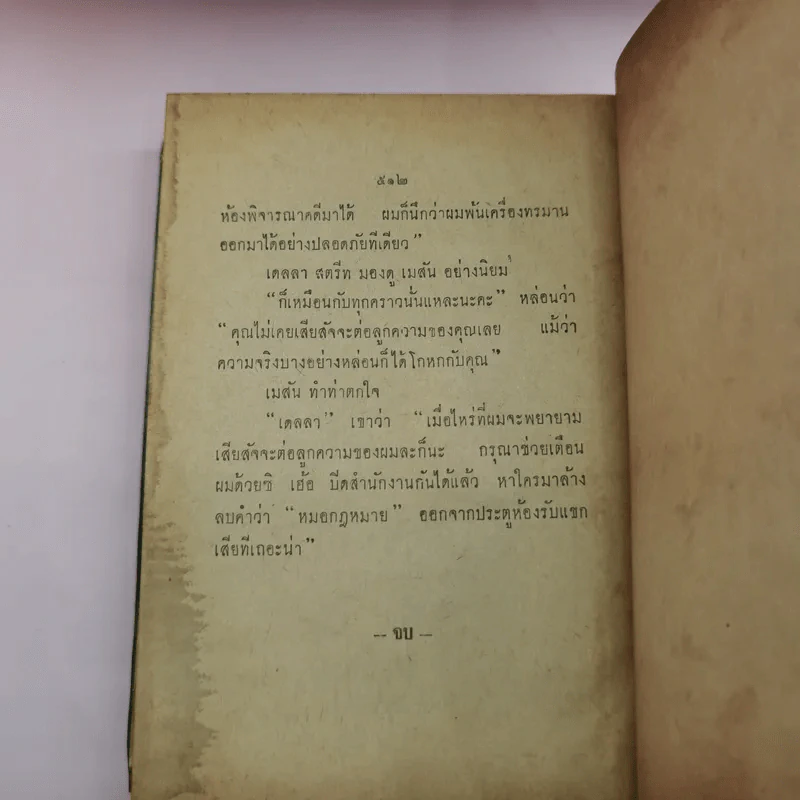 ๕๑๒
ห้องพิจารณาคดีมาได้ ผมก็นึกว่าผมพ้นเครื่องทรมาน
ออกมาได้อย่างปลอดภัยทีเดียว”
เดลลา สตรีท มองดู เมสัน อย่างนิยม
“ก็เหมือนกับทุกคราวนั้นแหละนะคะ” หล่อนว่า
“คุณไม่เคยเสียสัจจะต่อลูกความของคุณเลย แม้ว่า
ความจริงบางอย่างหล่อนก็ได้โกหกกับคุณ”
เมสัน ทำท่าตกใจ
“เดลลา” เขาว่า “เมื่อไหร่ที่ผมจะพยายาม
เสียสัจจะต่อลูกความของผมละก็นะ กรุณาช่วยเตือน
ผมด้วยซิ เฮ้อ ปิดสำนักงานกันได้แล้ว หาใครมาล้าง
ลบคำว่า “หมอกฎหมาย” ออกจากประตูห้องรับแขก
เสียทีเถอะน่า”
-- จบ --